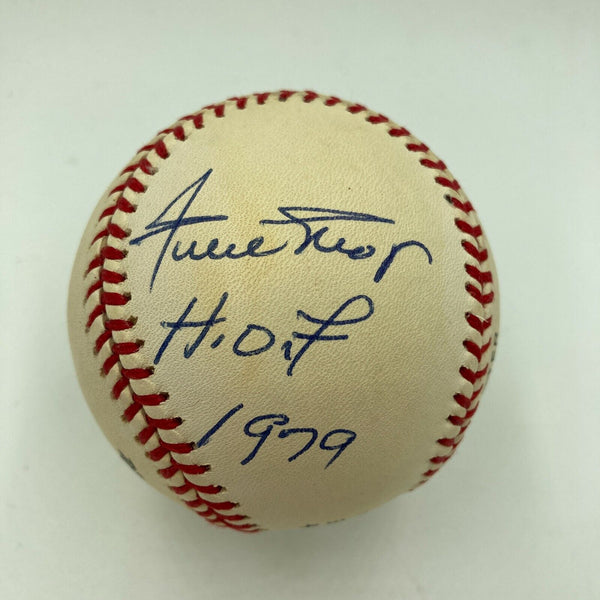 Willie Mays
H.O.F
1979